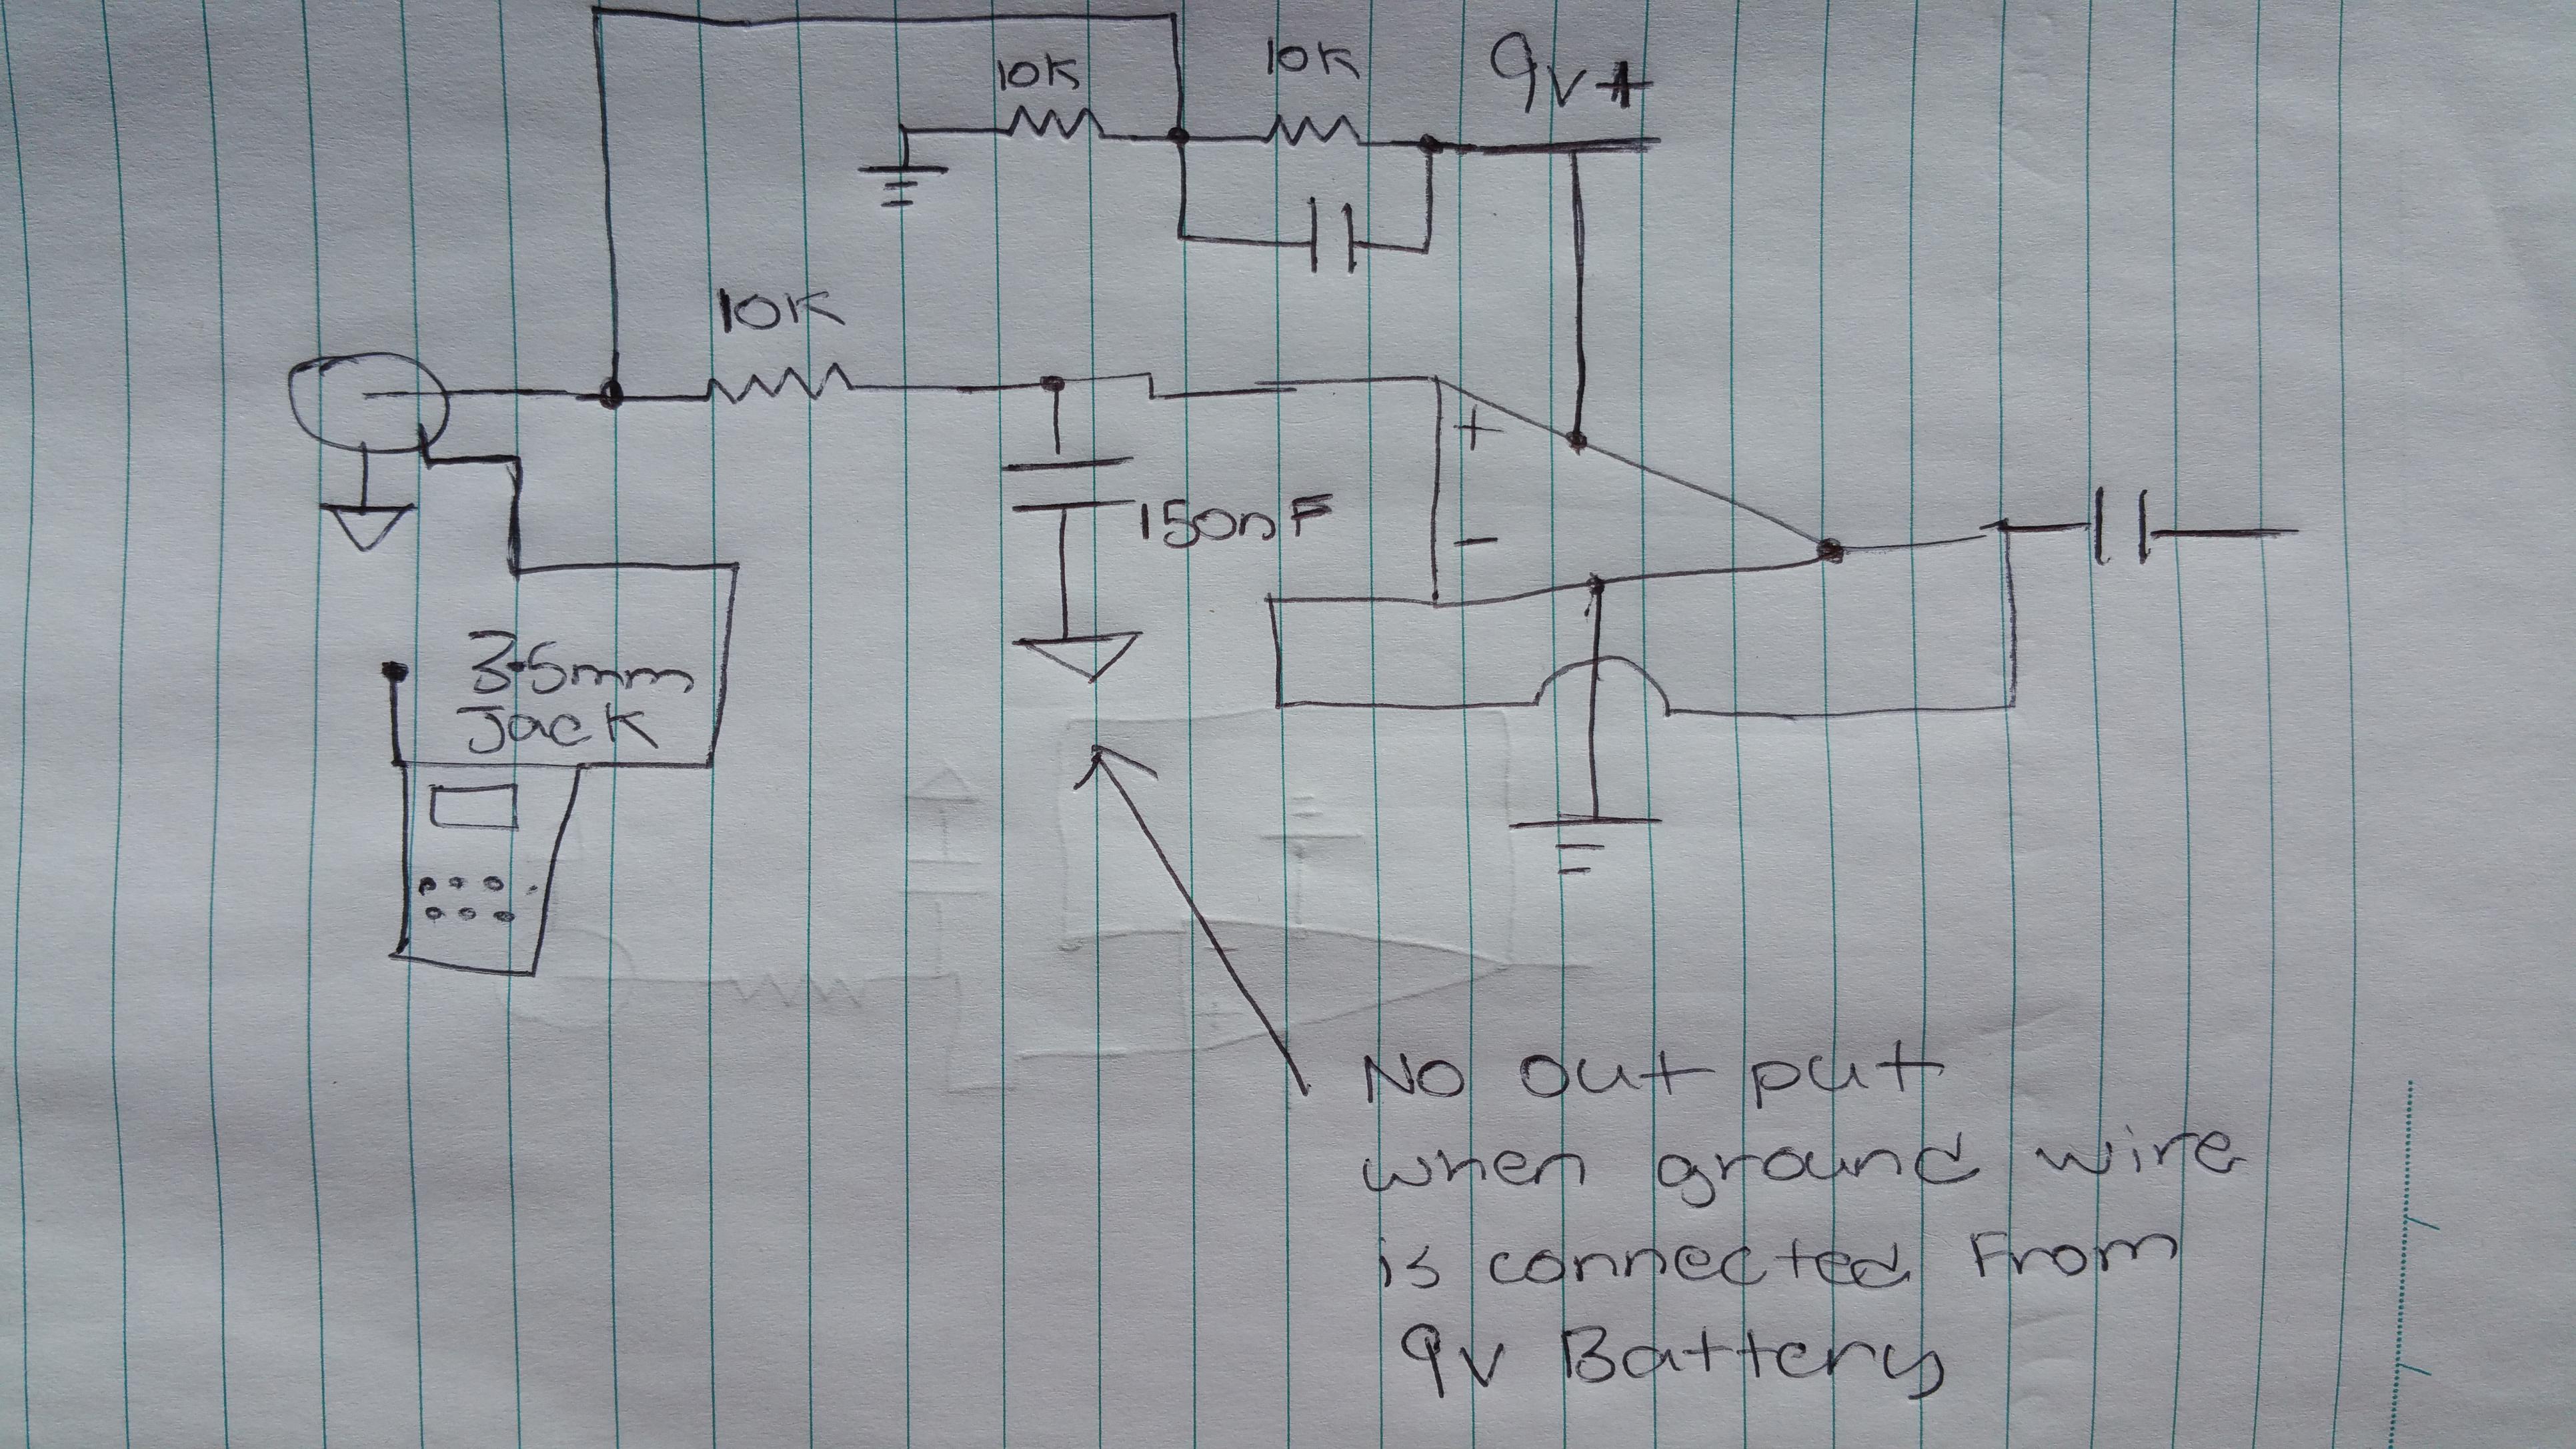 10K
10K
9v+
10K
+
-
150nF
3.5mm
Jack
No out put
when ground wire
is connected From
9v Battery